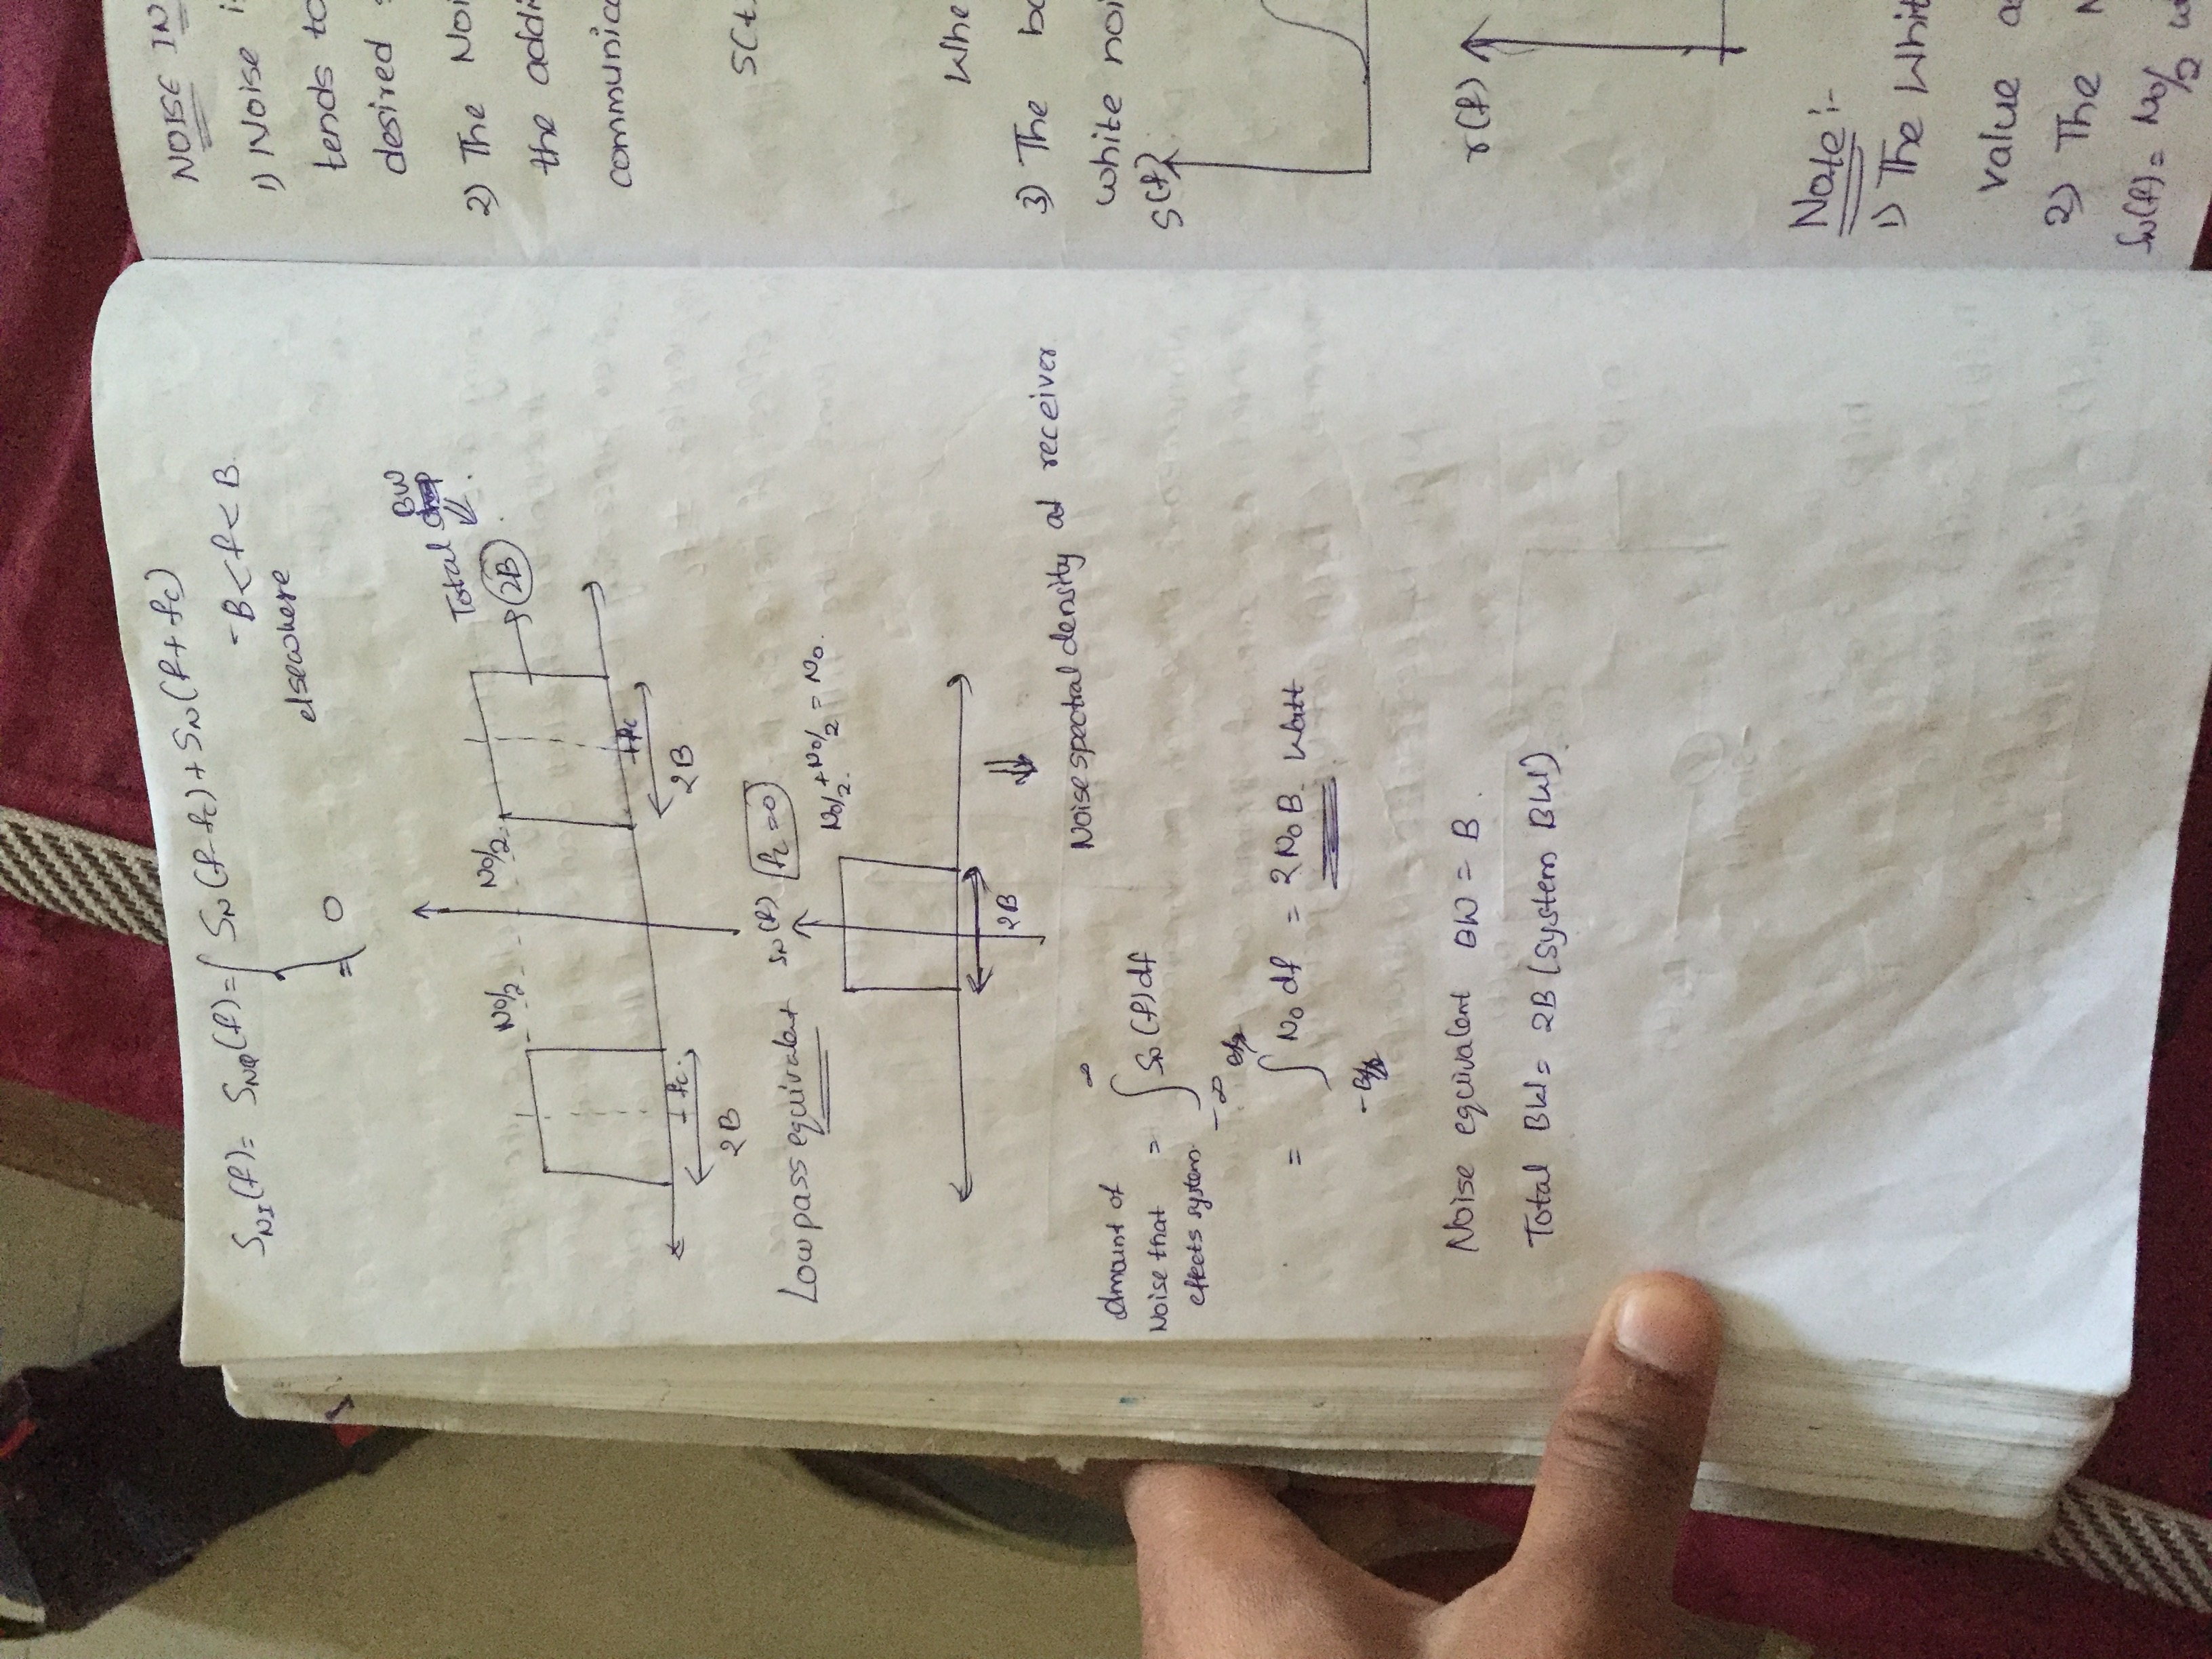 S_NI(f) = S_NQ(f) = { S_N(f-fc) + S_N(f+fc)
-B < f < B
= 0 elsewhere
Total BW
No/2 No/2 → 2B
+fc
+fc.
2B
2B
Lowpass equivalent S_N(f) fc=0
No/2 + No/2 = No.
2B
Noise spectral density at receiver
Amount of
Noise that = ∫ S_N(f) df
effects system.
∞
-∞
= ∫ No df = 2NoB. Watt
-B
Noise equivalent BW = B.
Total BW = 2B (System BW)
NOISE IN
1) Noise is
tends to
desired
2) The Noi
the addi
communica
S(t)
Whe
3) The ba
white noi
S(f)
r(f)
Note :-
1) The Whit
value a
2) The N
S_N(f) = No/2 w